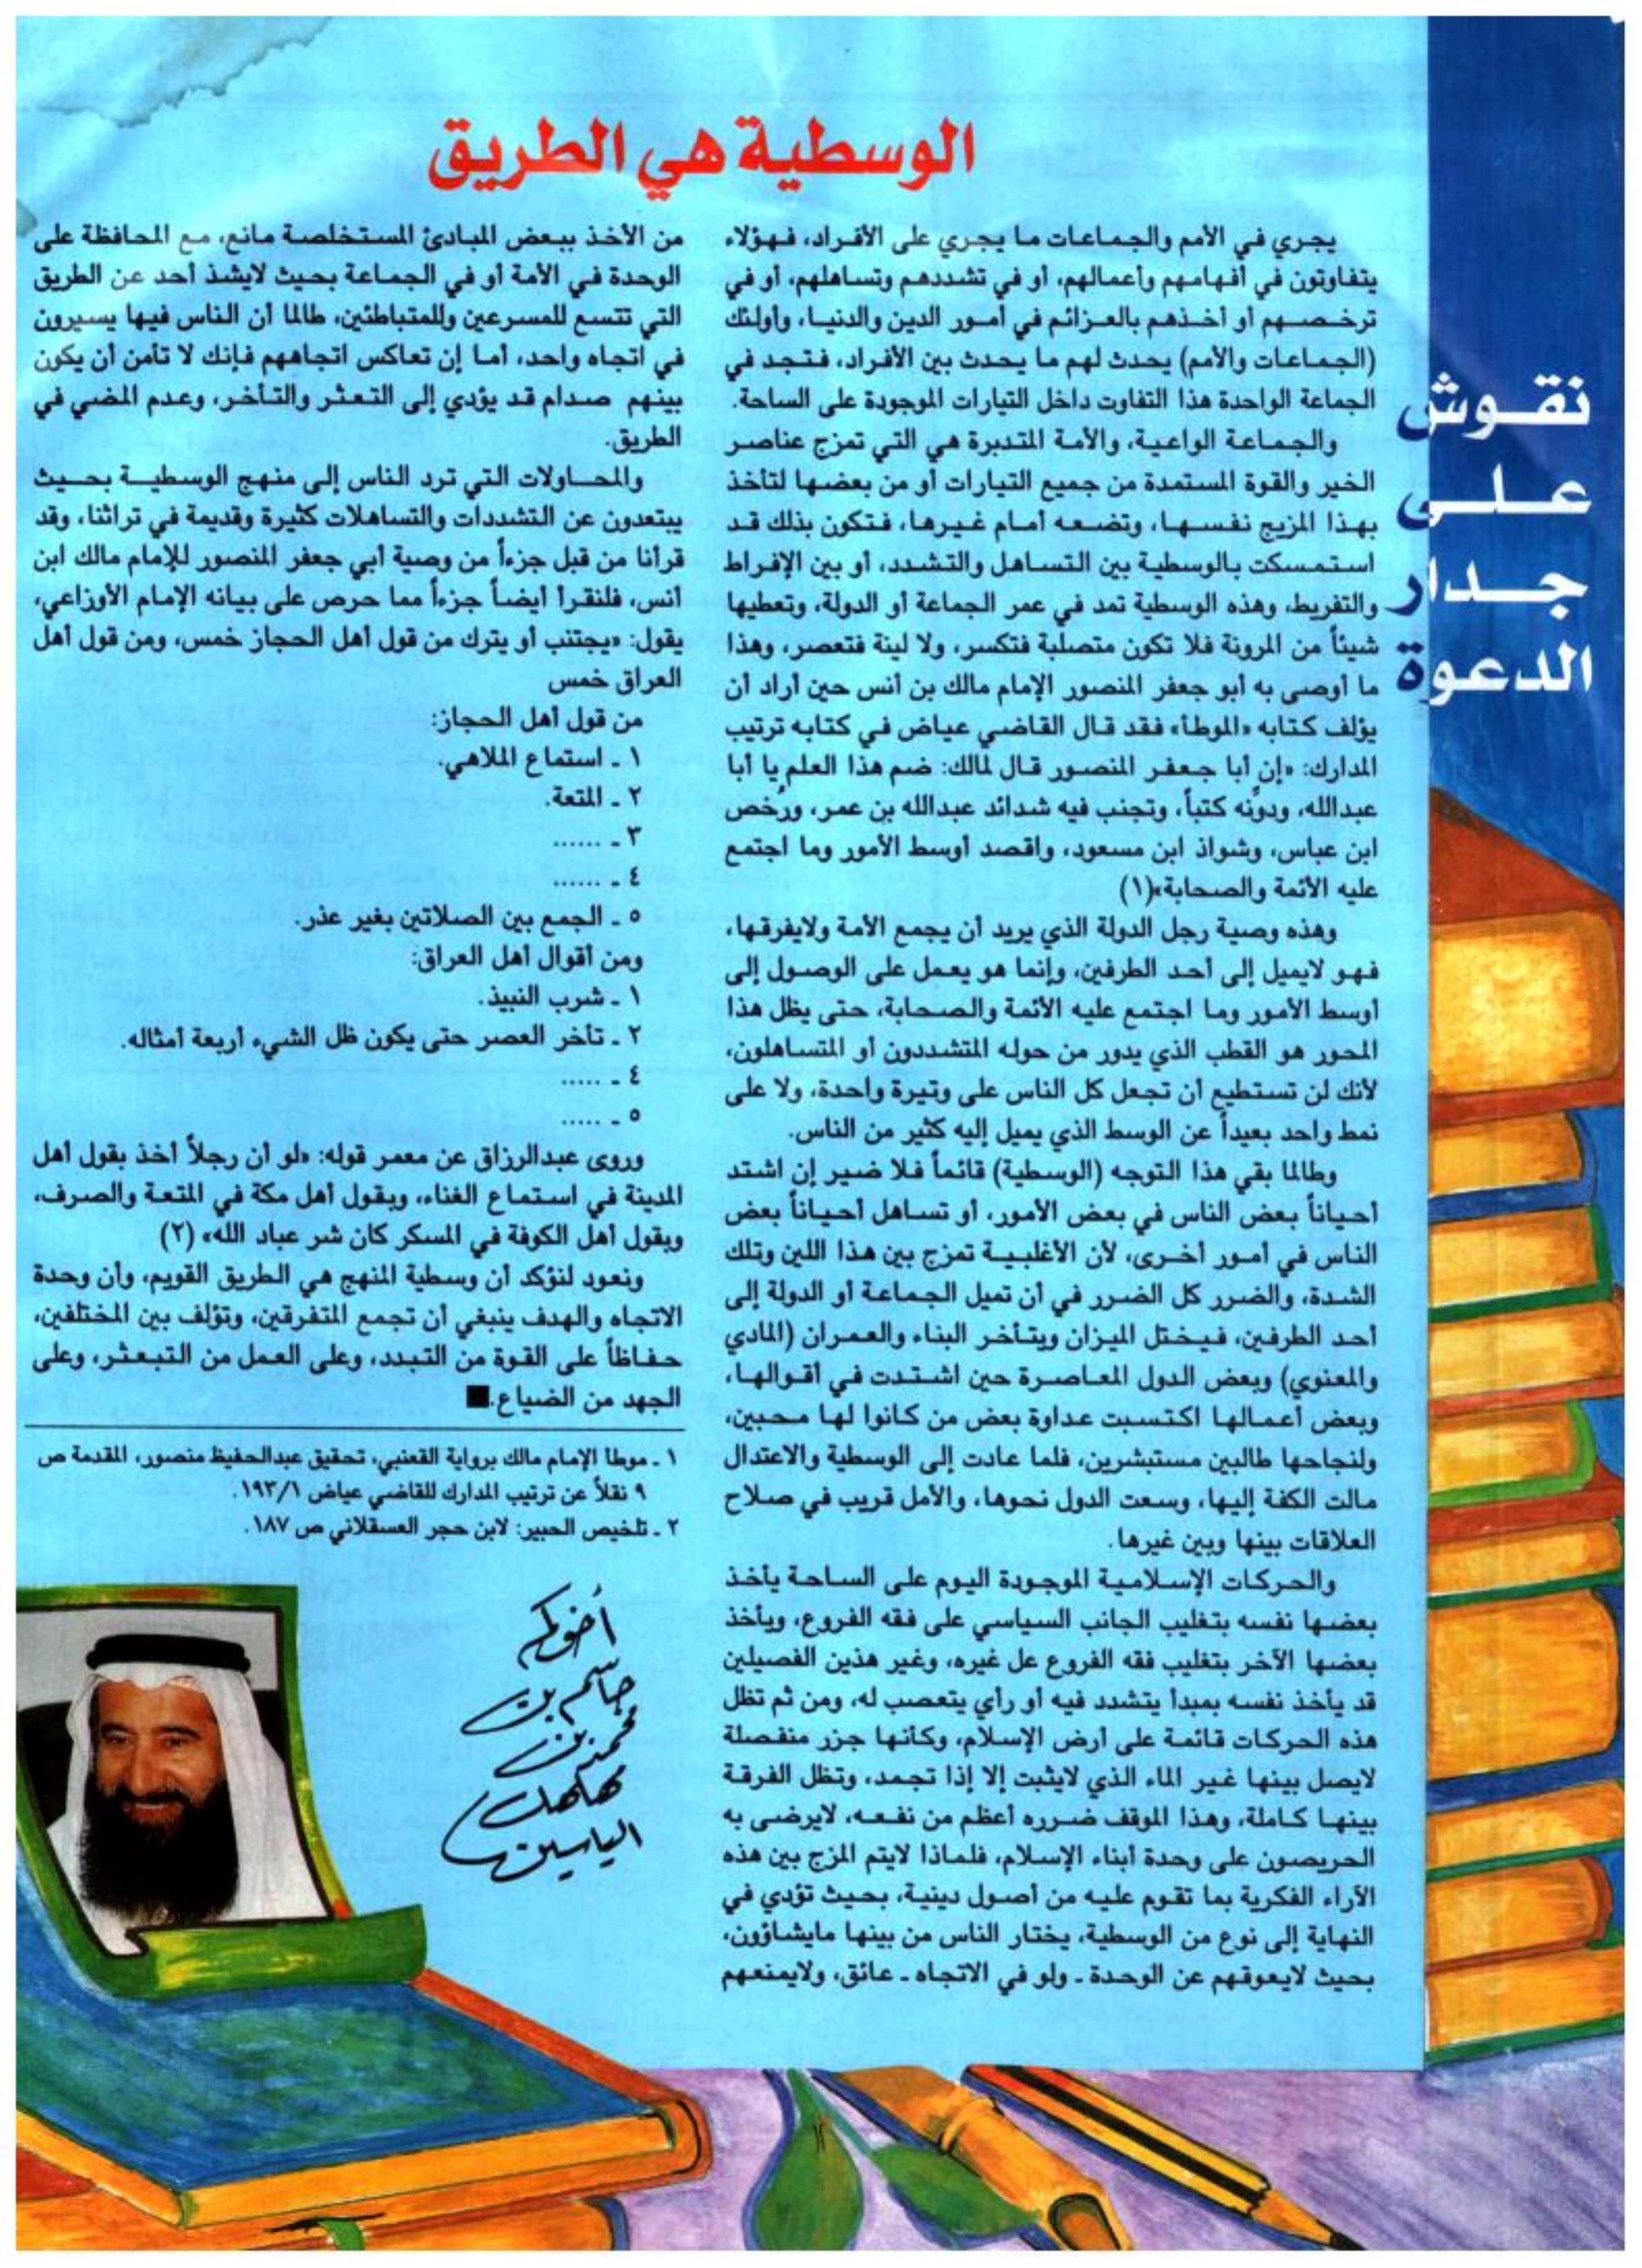 الوسطية هي الطريق
نقوش
على
جدار
الدعوة
يجري في الأمم والجماعات ما يجري على الأفراد، فهؤلاء
يتفاوتون في أفهامهم وأعمالهم، أو في تشددهم وتساهلهم، أو في
ترخصهم أو أخذهم بالعزائم في أمور الدين والدنيا، وأولئك
(الجماعات والأمم) يحدث لهم ما يحدث بين الأفراد، فتجد في
الجماعة الواحدة هذا التفاوت داخل التيارات الموجودة على الساحة.
والجماعة الواعية، والأمة المتدبرة هي التي تمزج عناصر
الخير والقوة المستمدة من جميع التيارات أو من بعضها لتأخذ
بهذا المزيج نفسها، وتضعه أمام غيرها، فتكون بذلك قد
استمسكت بالوسطية بين التساهل والتشدد، أو بين الإفراط
والتفريط، وهذه الوسطية تمد في عمر الجماعة أو الدولة، وتعطيها
شيئاً من المرونة فلا تكون متصلبة فتكسر، ولا لينة فتعصر، وهذا
ما أوصى به أبو جعفر المنصور الإمام مالك بن أنس حين أراد أن
يؤلف كتابه «الموطأ» فقد قال القاضي عياض في كتابه ترتيب
المدارك: «إن أبا جعفر المنصور قال لمالك: ضم هذا العلم يا أبا
عبدالله، ودوِّنه كتباً، وتجنب فيه شدائد عبدالله بن عمر، ورُخص
ابن عباس، وشواذ ابن مسعود، واقصد أوسط الأمور وما اجتمع
عليه الأئمة والصحابة»(١)
وهذه وصية رجل الدولة الذي يريد أن يجمع الأمة ولايفرقها،
فهو لايميل إلى أحد الطرفين، وإنما هو يعمل على الوصول إلى
أوسط الأمور وما اجتمع عليه الأئمة والصحابة، حتى يظل هذا
المحور هو القطب الذي يدور من حوله المتشددون أو المتساهلون،
لأنك لن تستطيع أن تجعل كل الناس على وتيرة واحدة، ولا على
نمط واحد بعيداً عن الوسط الذي يميل إليه كثير من الناس.
وطالما بقي هذا التوجه (الوسطية) قائماً فلا ضير إن اشتد
أحياناً بعض الناس في بعض الأمور، أو تساهل أحياناً بعض
الناس في أمور أخرى، لأن الأغلبية تمزج بين هذا اللين وتلك
الشدة، والضرر كل الضرر في أن تميل الجماعة أو الدولة إلى
أحد الطرفين، فيختل الميزان ويتأخر البناء والعمران (المادي
والمعنوي) وبعض الدول المعاصرة حين اشتدت في أقوالها،
وبعض أعمالها اكتسبت عداوة بعض من كانوا لها محبين،
ولنجاحها طالبين مستبشرين، فلما عادت إلى الوسطية والاعتدال
مالت الكفة إليها، وسعت الدول نحوها، والأمل قريب في صلاح
العلاقات بينها وبين غيرها.
والحركات الإسلامية الموجودة اليوم على الساحة يأخذ
بعضها نفسه بتغليب الجانب السياسي على فقه الفروع، ويأخذ
بعضها الآخر بتغليب فقه الفروع عل غيره، وغير هذين الفصيلين
قد يأخذ نفسه بمبدأ يتشدد فيه أو رأي يتعصب له، ومن ثم تظل
هذه الحركات قائمة على أرض الإسلام، وكأنها جزر منفصلة
لايصل بينها غير الماء الذي لايثبت إلا إذا تجمد، وتظل الفرقة
بينها كاملة، وهذا الموقف ضرره أعظم من نفعه، لايرضى به
الحريصون على وحدة أبناء الإسلام، فلماذا لايتم المزج بين هذه
الآراء الفكرية بما تقوم عليه من أصول دينية، بحيث تؤدي في
النهاية إلى نوع من الوسطية، يختار الناس من بينها مايشاؤون،
بحيث لايعوقهم عن الوحدة ـ ولو في الاتجاه ـ عائق، ولايمنعهم
من الأخذ ببعض المبادئ المستخلصة مانع، مع المحافظة على
الوحدة في الأمة أو في الجماعة بحيث لايشذ أحد عن الطريق
التي تتسع للمسرعين وللمتباطئين، طالما أن الناس فيها يسيرون
في اتجاه واحد، أما إن تعاكس اتجاههم فإنك لا تأمن أن يكون
بينهم صدام قد يؤدي إلى التعثر والتأخر، وعدم المضي في
الطريق.
والمحاولات التي ترد الناس إلى منهج الوسطية بحيث
يبتعدون عن التشددات والتساهلات كثيرة وقديمة في تراثنا، وقد
قرأنا من قبل جزءاً من وصية أبي جعفر المنصور للإمام مالك ابن
أنس، فلنقرأ أيضاً جزءاً مما حرص على بيانه الإمام الأوزاعي،
يقول: «يجتنب أو يترك من قول أهل الحجاز خمس، ومن قول أهل
العراق خمس
من قول أهل الحجاز:
١ ـ استماع الملاهي.
٢ ـ المتعة.
٣ ـ ......
٤ ـ ......
٥ ـ الجمع بين الصلاتين بغير عذر.
ومن أقوال أهل العراق:
١ ـ شرب النبيذ.
٢ ـ تأخر العصر حتى يكون ظل الشيء أربعة أمثاله.
٤ ـ .....
٥ ـ .....
وروى عبدالرزاق عن معمر قوله: «لو أن رجلاً أخذ بقول أهل
المدينة في استماع الغناء، وبقول أهل مكة في المتعة والصرف،
وبقول أهل الكوفة في المسكر كان شر عباد الله» (٢)
ونعود لنؤكد أن وسطية المنهج هي الطريق القويم، وأن وحدة
الاتجاه والهدف ينبغي أن تجمع المتفرقين، وتؤلف بين المختلفين،
حفاظاً على القوة من التبدد، وعلى العمل من التبعثر، وعلى
الجهد من الضياع.■
١ ـ موطأ الإمام مالك برواية القعنبي، تحقيق عبدالحفيظ منصور، المقدمة ص
٩ نقلاً عن ترتيب المدارك للقاضي عياض ١٩٣/١.
٢ ـ تلخيص الحبير: لابن حجر العسقلاني ص ١٨٧.
أخوكم
جاسم بن
محمد بن
مهلهل
الياسين